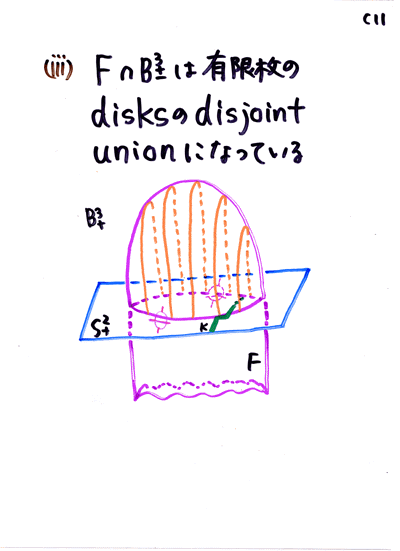 C11
(iii) F∩B³± は有限枚の
disksのdisjoint
unionになっている
B³₊
S²₊
K
F